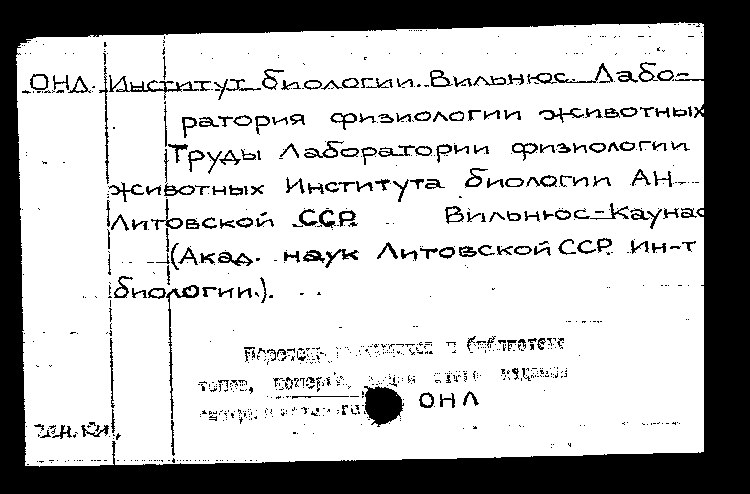 ОНЛ. Институт биологии. Вильнюс. Лабо-
ратория физиологии животных
Труды Лаборатории физиологии
животных Института биологии АН
Литовской ССР. Вильнюс-Каунас
(Акад. наук Литовской ССР. Ин-т
биологии.).
Перечень имеющихся в библиотеке
томов, номеров, этого издания
ОНЛ